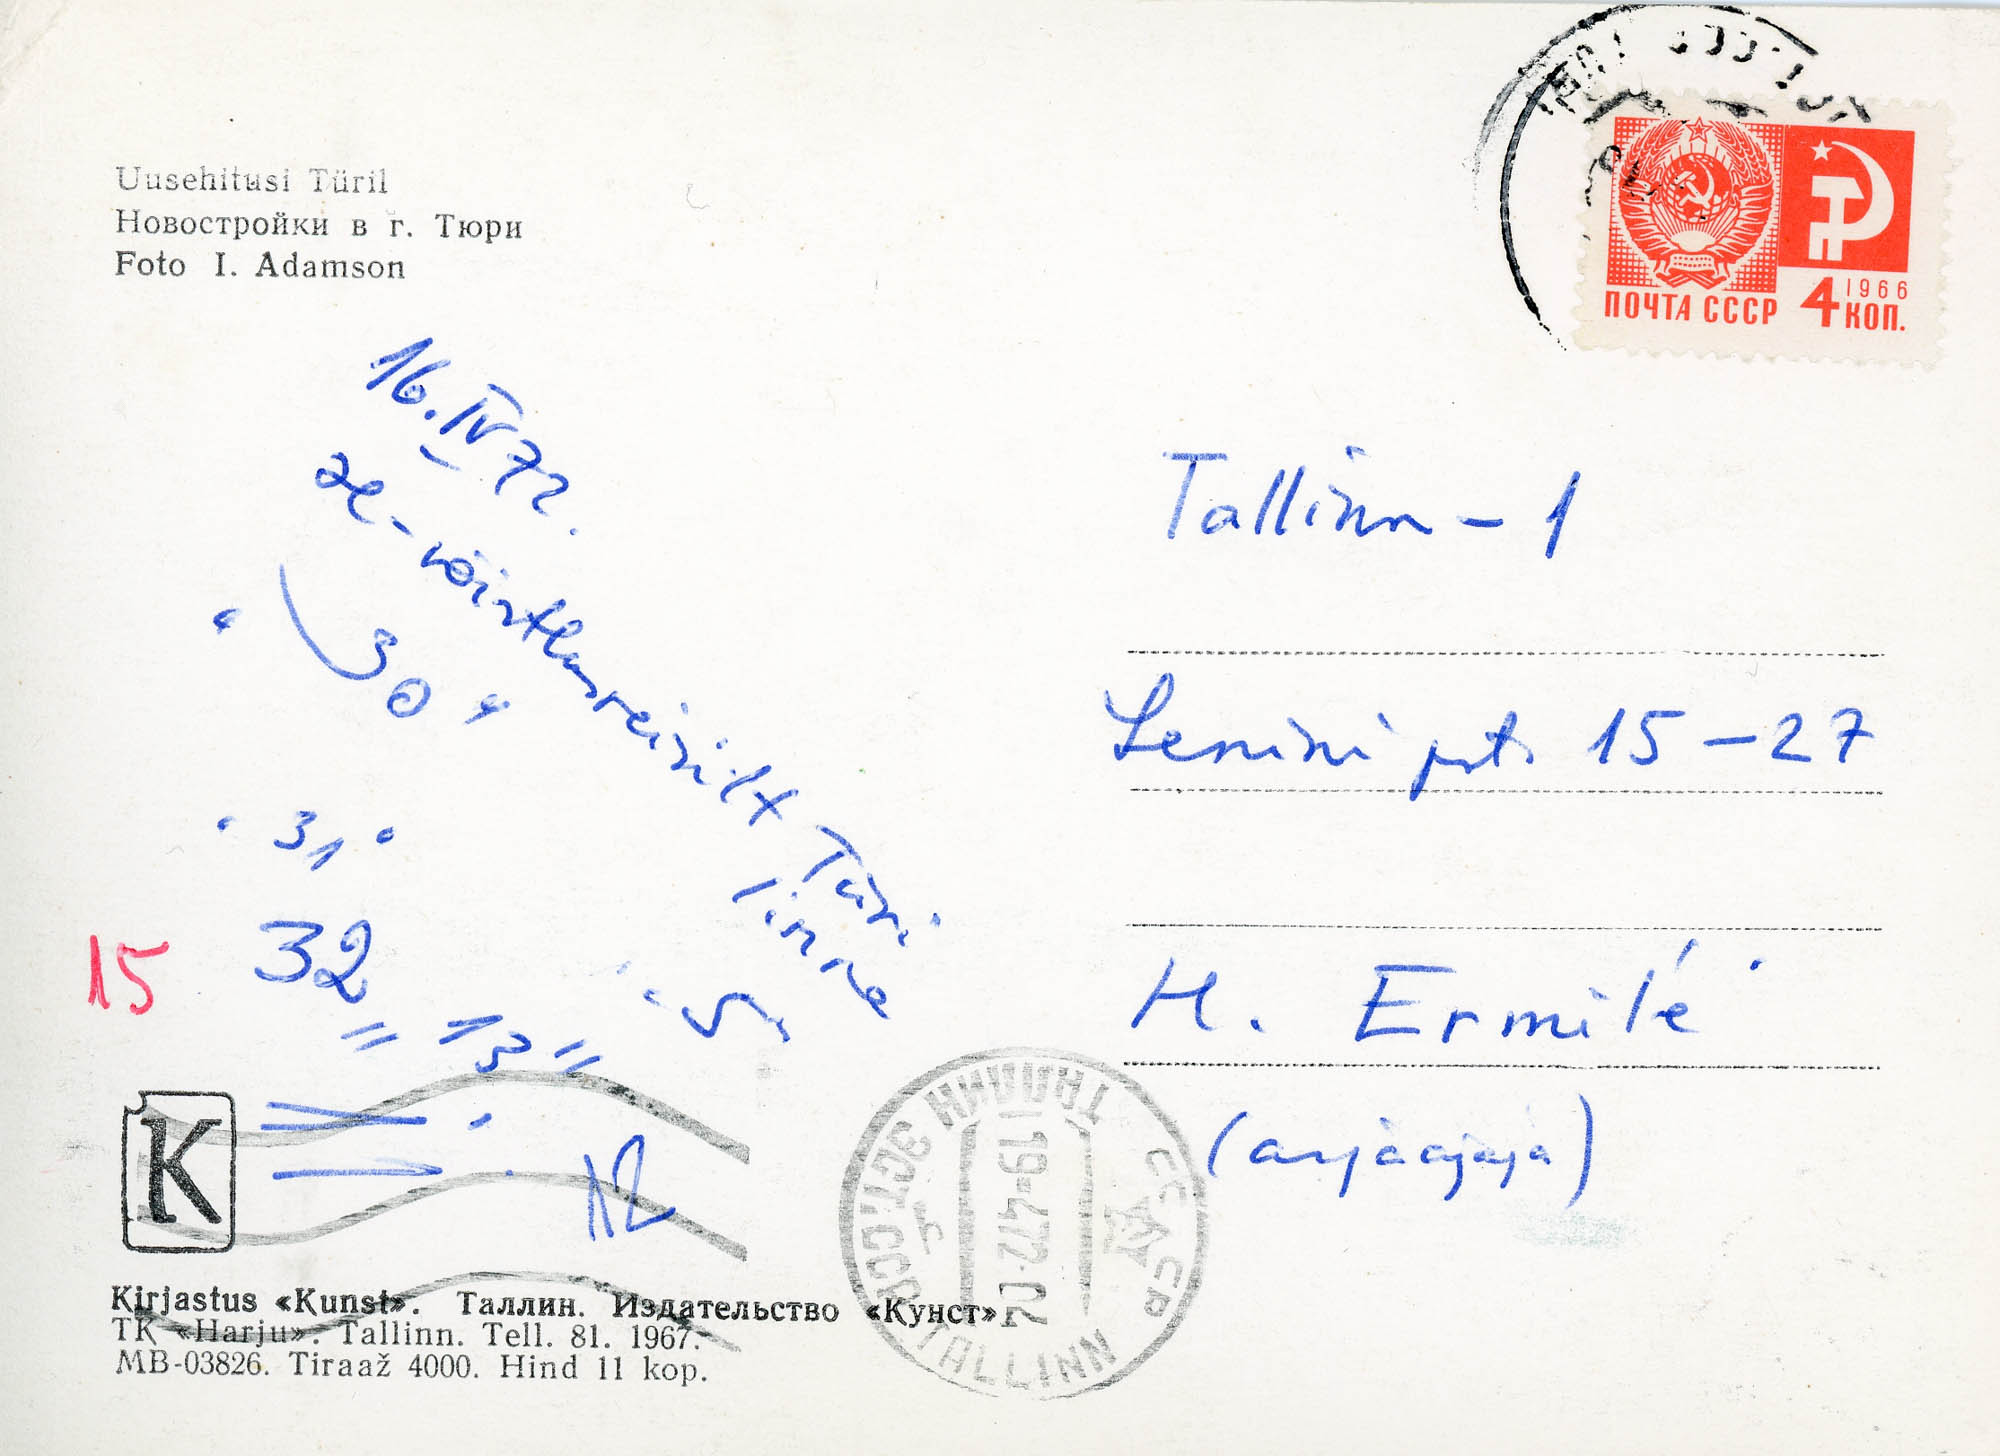 Uusehitusi Türil
Новостройки в г. Тюри
Foto I. Adamson
ПОЧТА СССР 4 КОП.
1966
16.IV 72.
võistlusreisilt Türi
linna
"30"
"31"
32
"13"
15
Tallinn-1
Lenini pst. 15-27
H. Ermilé
(asjaajaja)
ТАЛЛИН ЭСТ.ССР
19-472-07
TALLINN
K
Kirjastus «Kunst». Таллин. Издательство «Кунст»
TK «Harju». Tallinn. Tell. 81. 1967.
MB-03826. Tiraaž 4000. Hind 11 kop.